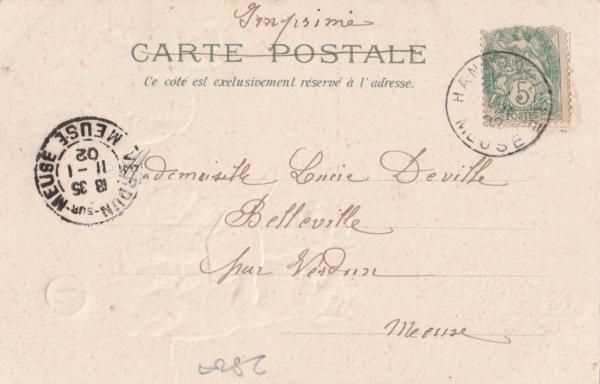 Imprimé
CARTE POSTALE
Ce côté est exclusivement réservé à l'adresse.
5c
POSTES
MEUSE
VERDUN-SUR-MEUSE
18 35
11 - 1
02
MEUSE
Mademoiselle Lucie Deville
Belleville
par Verdun
Meuse